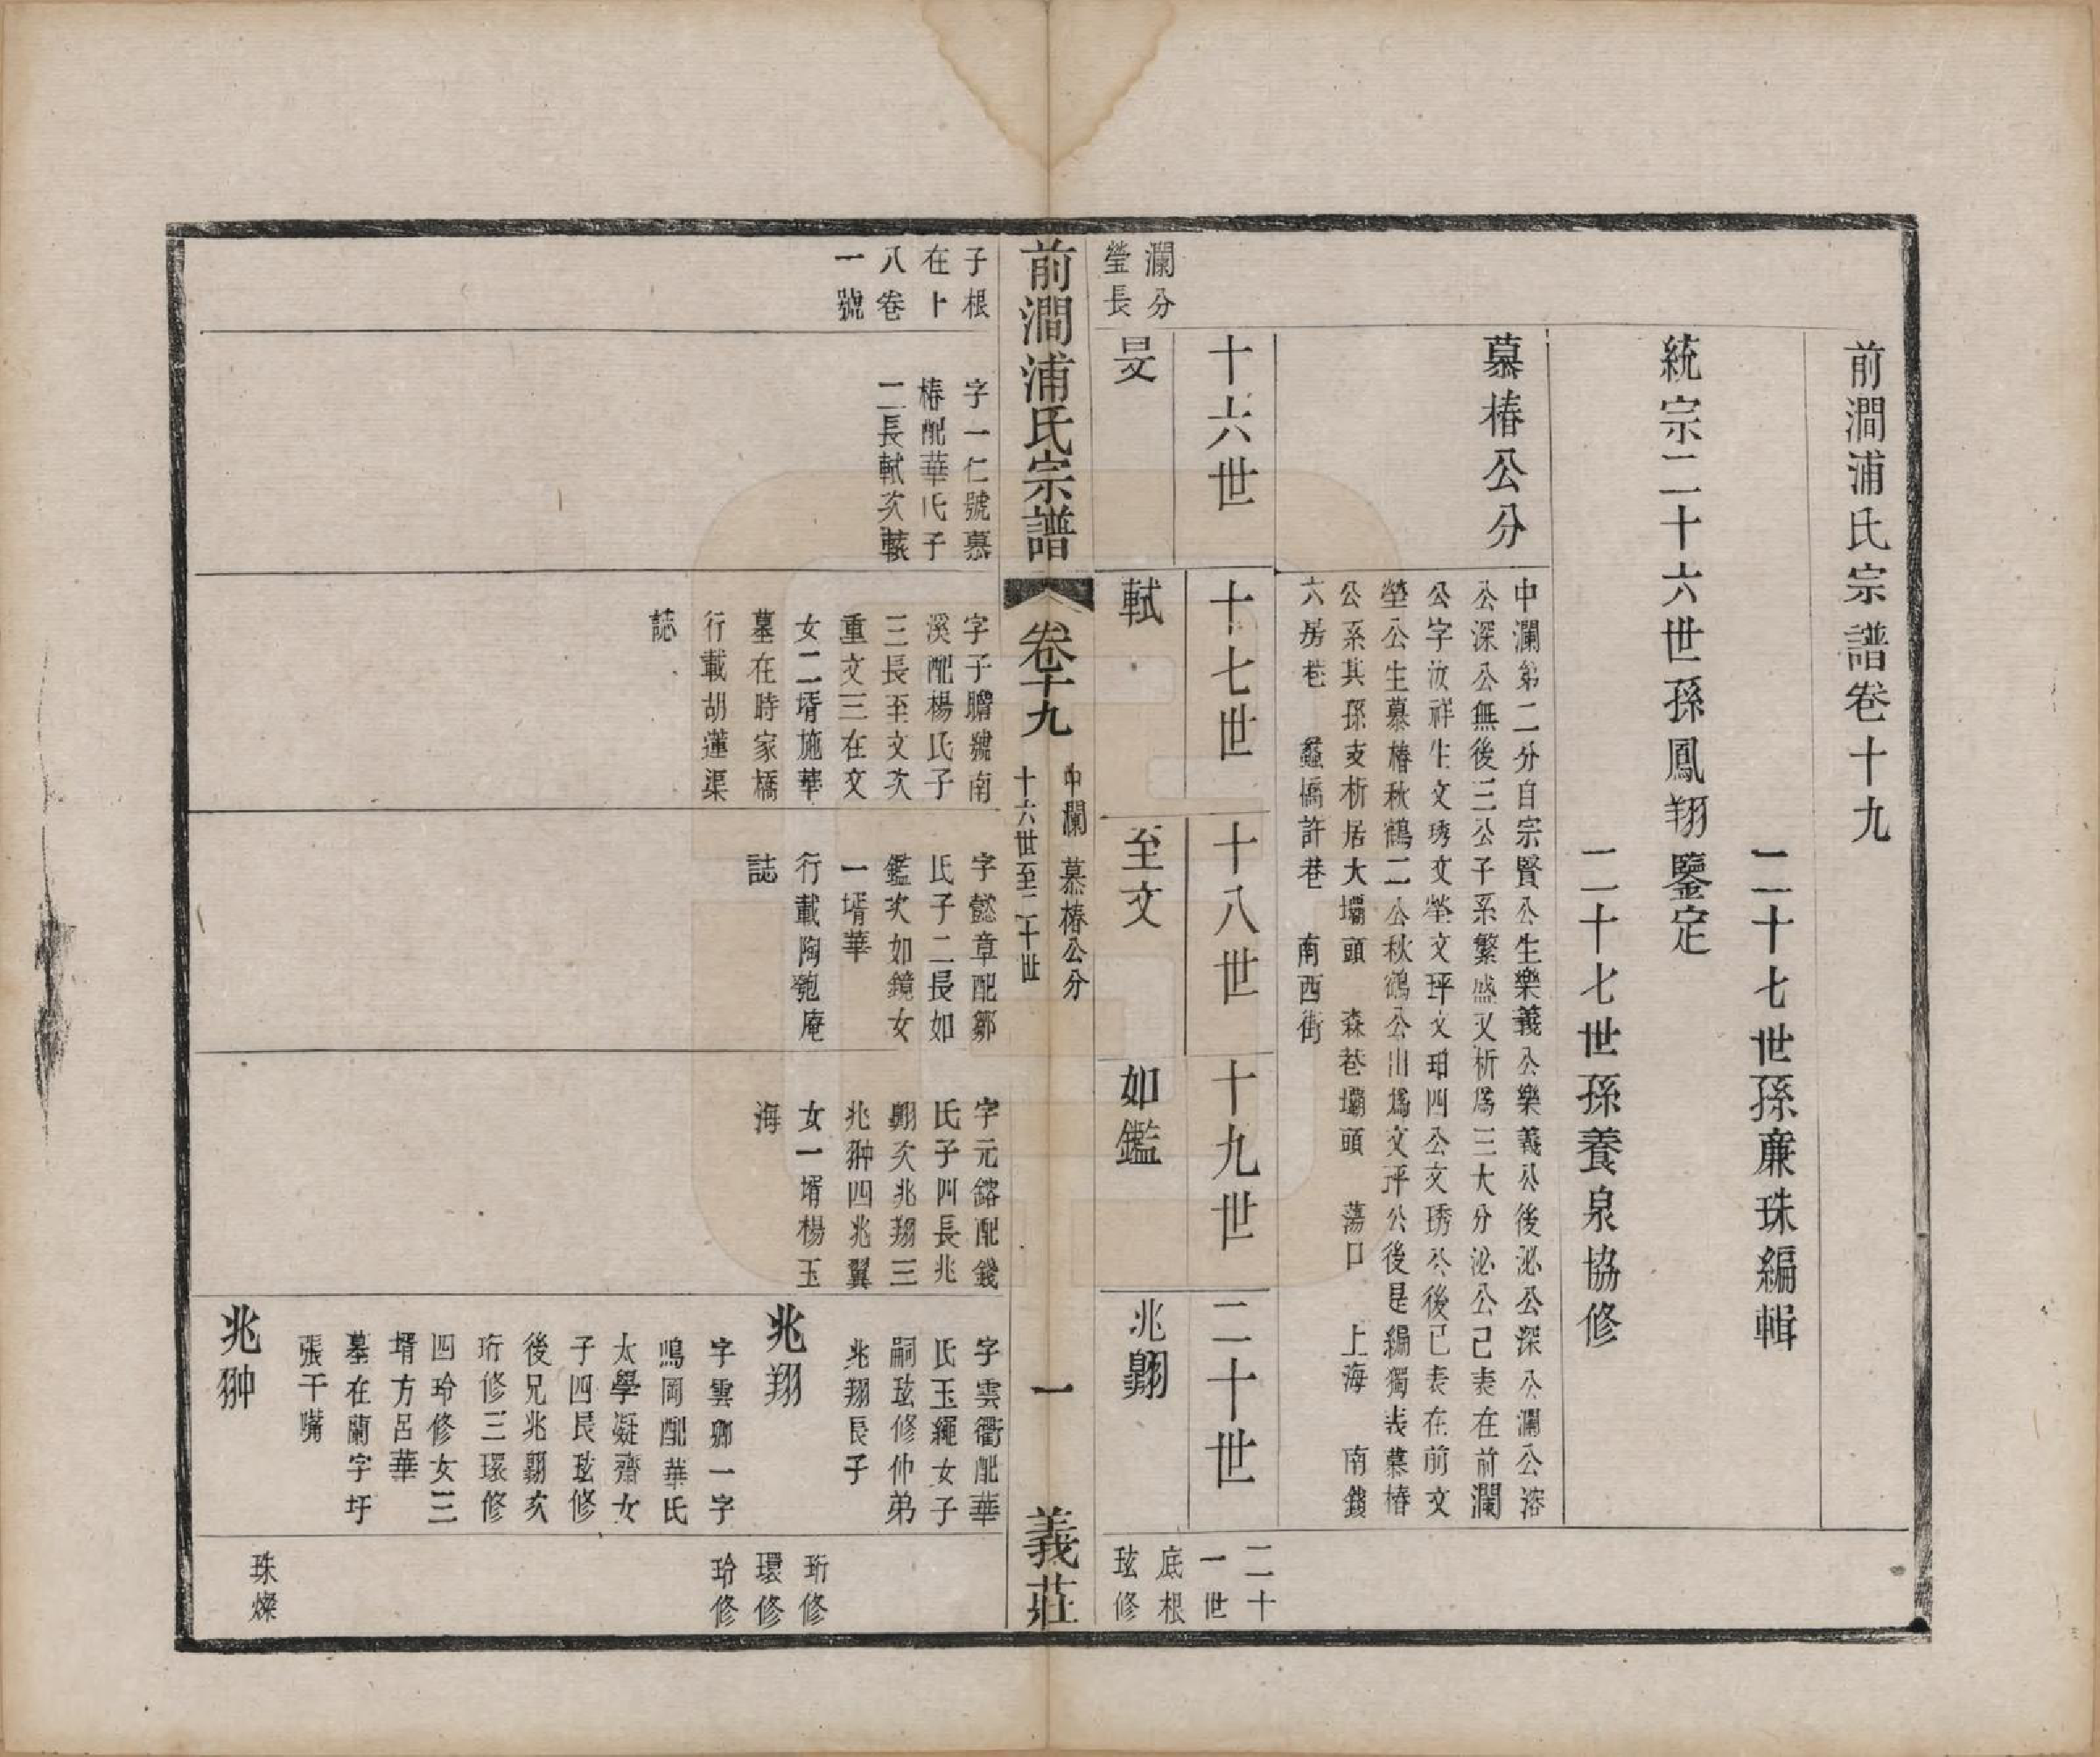 前澗浦氏宗譜卷十九
二十七世孫廉珠編輯
統宗二十六世孫鳳翔鑒定
二十七世孫養泉協修
慕椿公分
中瀾第二分自宗賢公生樂義公樂義公後泌公深公瀾公溶
公深公無後三公子系繁盛又析爲三大分泌公已表在前瀾
公字汝祥生文琇文瑩文玶文珇四公文琇公後已表在前文
瑩公生慕椿秋鶴二公秋鶴公出爲文玶公後是編獨表慕椿
公系其孫支析居大壩頭　森巷壩頭　蕩口　上海　南錢
六房巷　蠡橋許巷　南西街
十六世
十七世
十八世
十九世
二十世
二十
一世
瀾分
瑩長
旻
軾
至文
如鑑
兆翾
底根
玹修
前澗浦氏宗譜
卷十九
中瀾　慕椿公分
十六世至二十世
一
義莊
子根
在十
八卷
一號
字一仁號慕
椿配華氏子
二長軾次轅
字子瞻號南
溪配楊氏子
三長至文次
重文三在文
女二壻施華
墓在時家橋
行載胡蓮渠
誌
字懿章配鄒
氏子二長如
鑑次如鏡女
一壻華
行載陶匏庵
誌
字元鎔配錢
氏子四長兆
翾次兆翔三
兆翀四兆翼
女一壻楊玉
海
字雲衢配華
氏玉繩女子
嗣玹修仲弟
兆翔長子
兆翔
字雲卿一字
鳴岡配華氏
太學凝齋女
子四長玹修
後兄兆翾次
珩修三環修
四玲修女三
壻方呂華
墓在蘭字圩
張干嘴
兆翀
珩修
環修
玲修
珠燦